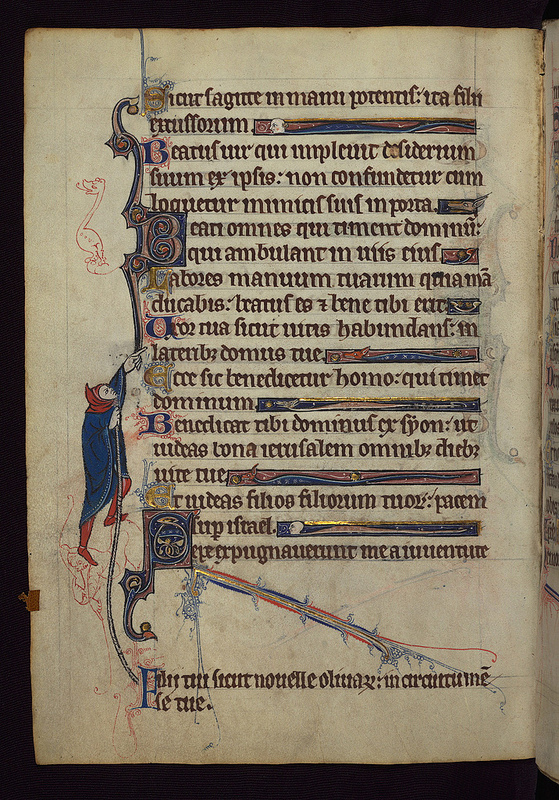 Sicut sagitte in manu potentis: ita filii
excussorum.
Beatus uir qui impleuit desiderium
suum ex ipsis: non confundetur cum
loquetur inimicis suis in porta.
Beati omnes qui timent dominum:
qui ambulant in uiis eius.
Labores manuum tuarum quia mā
ducabis: beatus es ⁊ bene tibi erit.
Uxor tua sicut uitis habundans: in
lateribꝫ domus tue.
Ecce sic benedicetur homo: qui timet
dominum.
Benedicat tibi dominus ex syon: ut
uideas bona ierusalem omnibꝫ diebꝫ
uite tue.
Et uideas filios filiorum tuoꝝ: pacem
sup israel.
Sepe expugnauerunt me a iuuentute
Filii tui sicut nouelle oliuaꝝ: in circuitu mē
se tue.